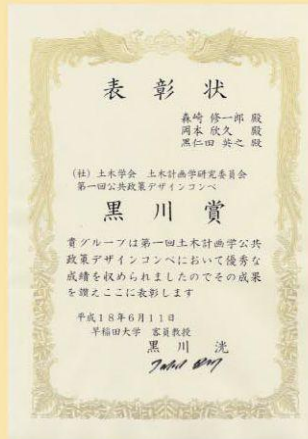 表彰状
森崎 修一郎 殿
岡本 欣久 殿
黒仁田 英之 殿
(社) 土木学会 土木計画学研究委員会
第一回公共政策デザインコンペ
黒川賞
貴グループは第一回土木計画学公共
政策デザインコンペにおいて優秀な
成績を収められましたのでその成果
を讃えここに表彰します
平成18年6月11日
早稲田大学 客員教授
黒川 洸